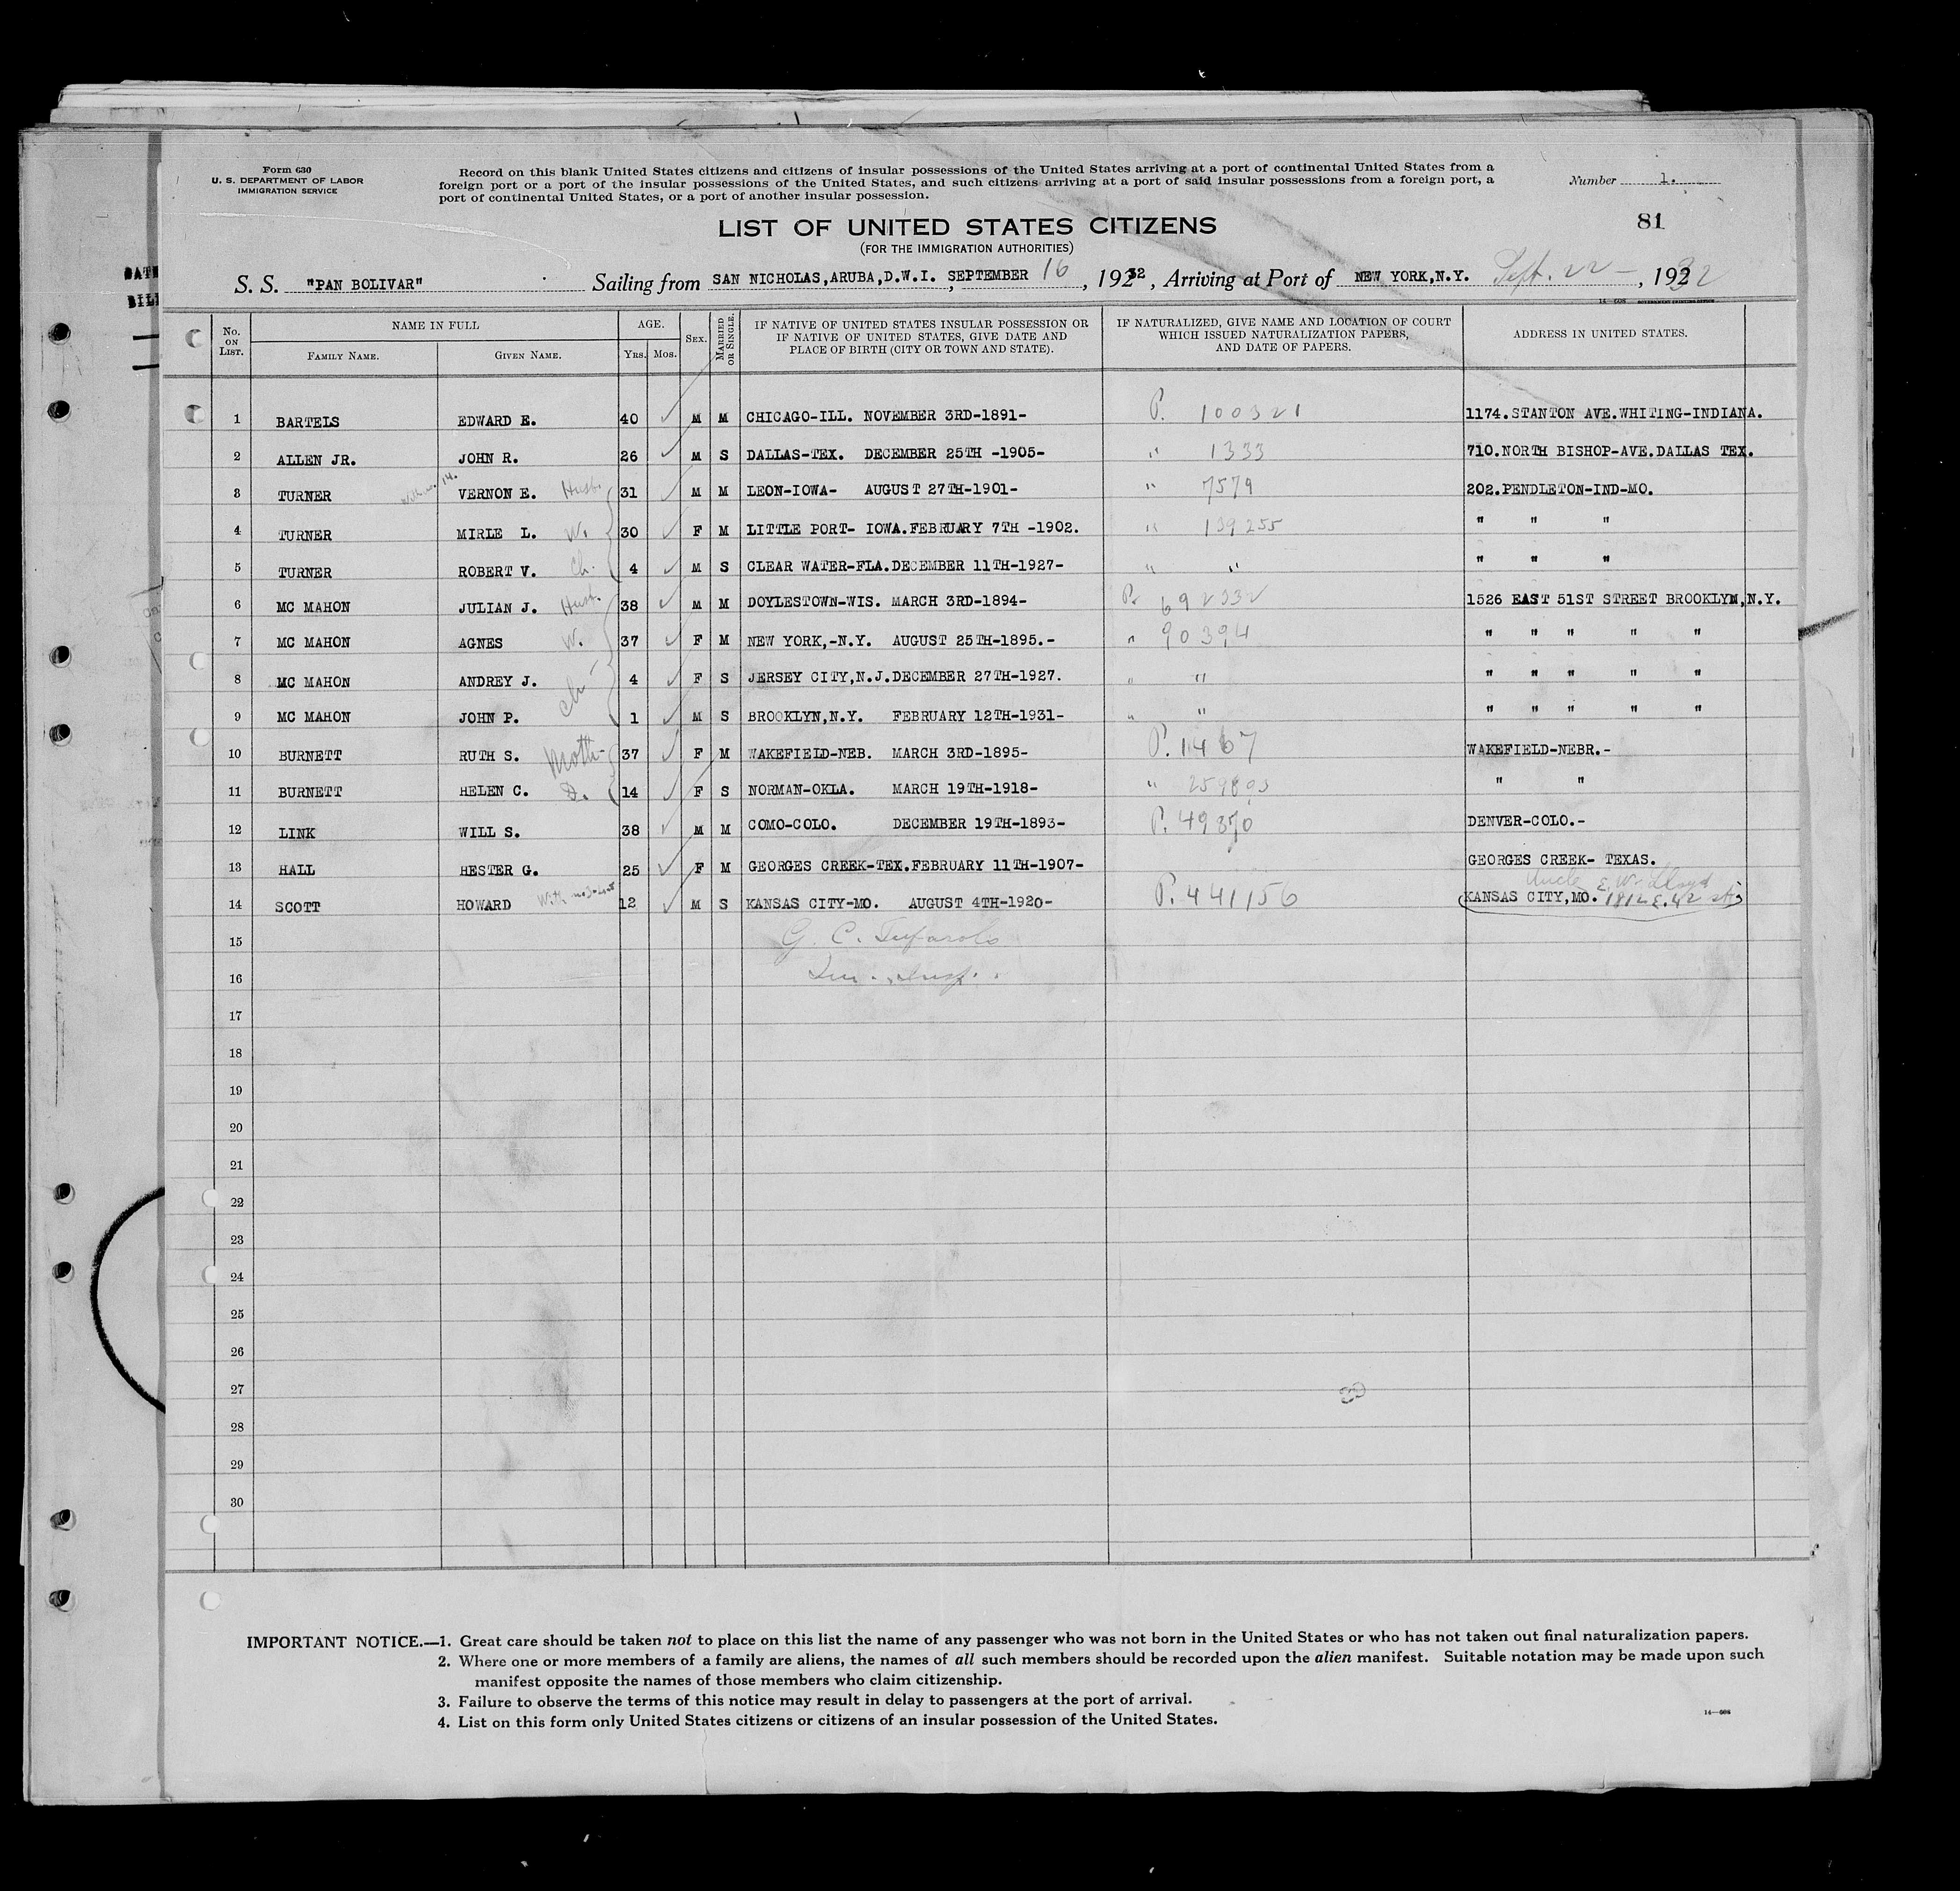 Form 630
U. S. DEPARTMENT OF LABOR
IMMIGRATION SERVICE
Record on this blank United States citizens and citizens of insular possessions of the United States arriving at a port of continental United States from a
foreign port or a port of the insular possessions of the United States, and such citizens arriving at a port of said insular possessions from a foreign port, a
port of continental United States, or a port of another insular possession.
Number 1.
81
LIST OF UNITED STATES CITIZENS
(FOR THE IMMIGRATION AUTHORITIES)
S. S. "PAN BOLIVAR" Sailing from SAN NICHOLAS,ARUBA,D.W.I. , SEPTEMBER 16 , 1932 , Arriving at Port of NEW YORK,N.Y. Sept. 22 - , 1932
No. ON LIST. NAME IN FULL AGE. SEX. MARRIED OR SINGLE. IF NATIVE OF UNITED STATES INSULAR POSSESSION OR IF NATIVE OF UNITED STATES, GIVE DATE AND PLACE OF BIRTH (CITY OR TOWN AND STATE). IF NATURALIZED, GIVE NAME AND LOCATION OF COURT WHICH ISSUED NATURALIZATION PAPERS, AND DATE OF PAPERS. ADDRESS IN UNITED STATES.
FAMILY NAME. GIVEN NAME. YRS. MOS.
1 BARTELS EDWARD E. 40 ✓ M M CHICAGO-ILL. NOVEMBER 3RD-1891- P. 100321 1174.STANTON AVE.WHITING-INDIANA.
2 ALLEN JR. JOHN R. 26 ✓ M S DALLAS-TEX. DECEMBER 25TH -1905- " 1333 710.NORTH BISHOP-AVE.DALLAS TEX.
3 TURNER With no. 14. VERNON E. Husb. 31 ✓ M M LEON-IOWA- AUGUST 27TH-1901- " 7579 202.PENDLETON-IND-MO.
4 TURNER MIRLE L. W. 30 ✓ F M LITTLE PORT- IOWA.FEBRUARY 7TH -1902. " 139255 " " "
5 TURNER ROBERT V. Ch. 4 ✓ M S CLEAR WATER-FLA.DECEMBER 11TH-1927- " " " " "
6 MC MAHON JULIAN J. Husb. 38 ✓ M M DOYLESTOWN-WIS. MARCH 3RD-1894- P. 692332 1526 EAST 51ST STREET BROOKLYN,N.Y.
7 MC MAHON AGNES W. 37 ✓ F M NEW YORK,-N.Y. AUGUST 25TH-1895.- " 90394 " " " " "
8 MC MAHON ANDREY J. ch 4 ✓ F S JERSEY CITY,N.J.DECEMBER 27TH-1927. " " " " " " "
9 MC MAHON JOHN P. 1 ✓ M S BROOKLYN,N.Y. FEBRUARY 12TH-1931- " " " " " " "
10 BURNETT RUTH S. Moth- 37 ✓ F M WAKEFIELD-NEB. MARCH 3RD-1895- P. 11467 WAKEFIELD-NEBR.-
11 BURNETT HELEN C. D. 14 ✓ F S NORMAN-OKLA. MARCH 19TH-1918- " " "
12 LINK WILL S. 38 ✓ M M COMO-COLO. DECEMBER 19TH-1893- P. 49870 DENVER-COLO.-
13 HALL HESTER G. 25 ✓ F M GEORGES CREEK-TEX.FEBRUARY 11TH-1907- GEORGES CREEK- TEXAS.
Uncle E. W. Lloyd
14 SCOTT HOWARD With 12 ✓ M S KANSAS CITY-MO. AUGUST 4TH-1920- P. 441156 KANSAS CITY,MO. 1812 E. 42 st
15 G. C.
16 Im. Insp.
17
18
19
20
21
22
23
24
25
26
27
28
29
30
IMPORTANT NOTICE.—1. Great care should be taken not to place on this list the name of any passenger who was not born in the United States or who has not taken out final naturalization papers.
2. Where one or more members of a family are aliens, the names of all such members should be recorded upon the alien manifest. Suitable notation may be made upon such
manifest opposite the names of those members who claim citizenship.
3. Failure to observe the terms of this notice may result in delay to passengers at the port of arrival.
4. List on this form only United States citizens or citizens of an insular possession of the United States.